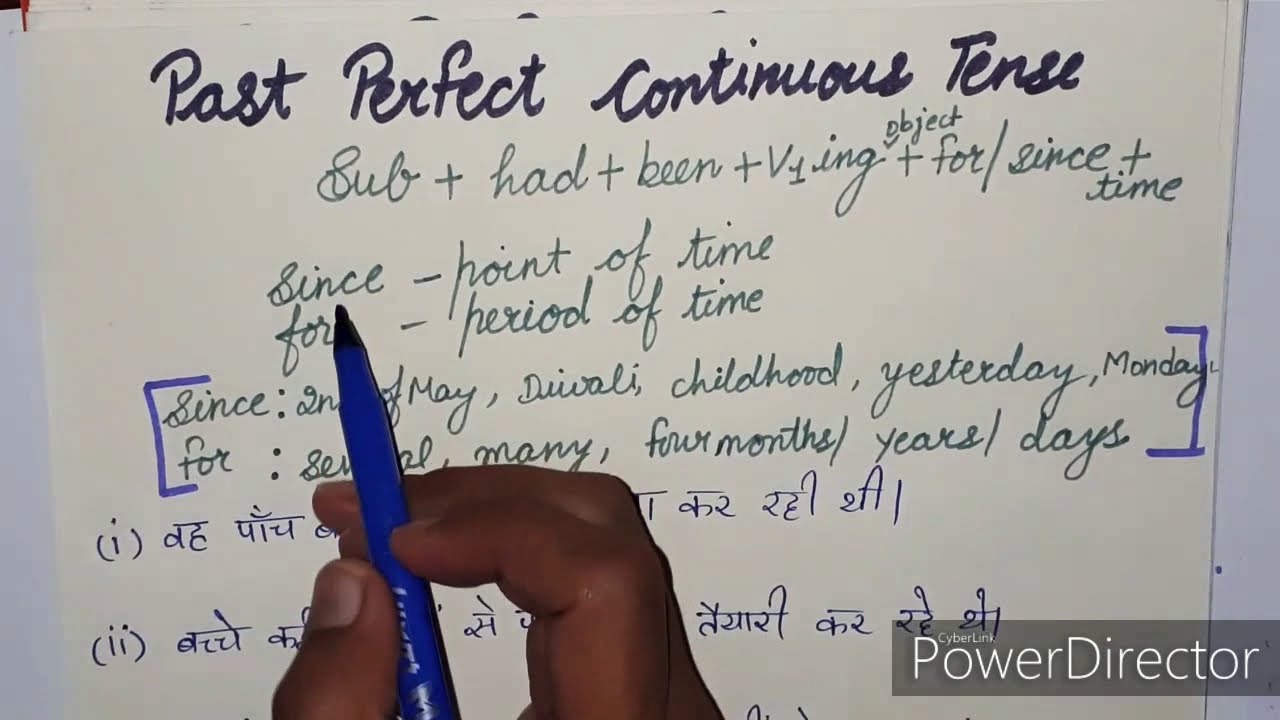 Past Perfect Continuous Tense
object
Sub + had + been + V1 ing + for/ since +
time
Since - point of time
for - period of time
Since: of May, Diwali, childhood, yesterday, Monday
for : many, four months/ years/ days
(i) वह पाँच कर रही थी।
(ii) बच्चे से तैयारी कर रहे थे।
CyberLink
PowerDirector